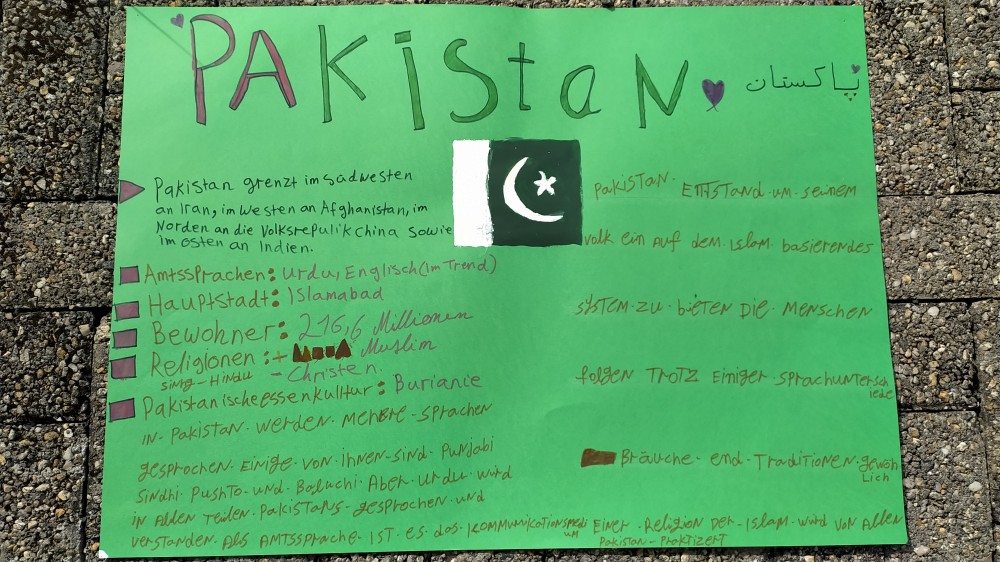 PAKiStaN
پاکستان
Pakistan grenzt im Südwesten
an Iran, im Westen an Afghanistan, im
Norden an die Volksrepulik China sowie
im osten an Indien.
Amtssprachen: Urdu, Englisch (im Trend)
Hauptstadt: Islamabad
Bewohner: 216,6 Millionen
Religionen: + Muslim
singh - Hindu - Christen.
Pakistanischeessenkulltur: Burianie
IN. Pakistan. werden. MEHRERE - sprachen
gesprochen. Einige. von. ihnen. sind. Punjabi
Sindhi. PushTo. und. Baluchi. Aber. urdu. wird
in Allen Teilen. Pakistans. gesprochen. und
verstanden. Als AMTSSprache. IsT. es. das. Kommunikationsmedi
um
PakisTAN. ENTSTAND. um. seinem
Volk ein Auf dem Islam. basierendes
sysTEM. zu. bieten DIE. MENSCHEN
folgen TROTZ Einiger. sprachuntersch
iede
Bräuche. end. TradiTionEN. gewöh
Lich
EinER. Religion DER. Islam. wird von Allen
Pakistan - PraktizerT